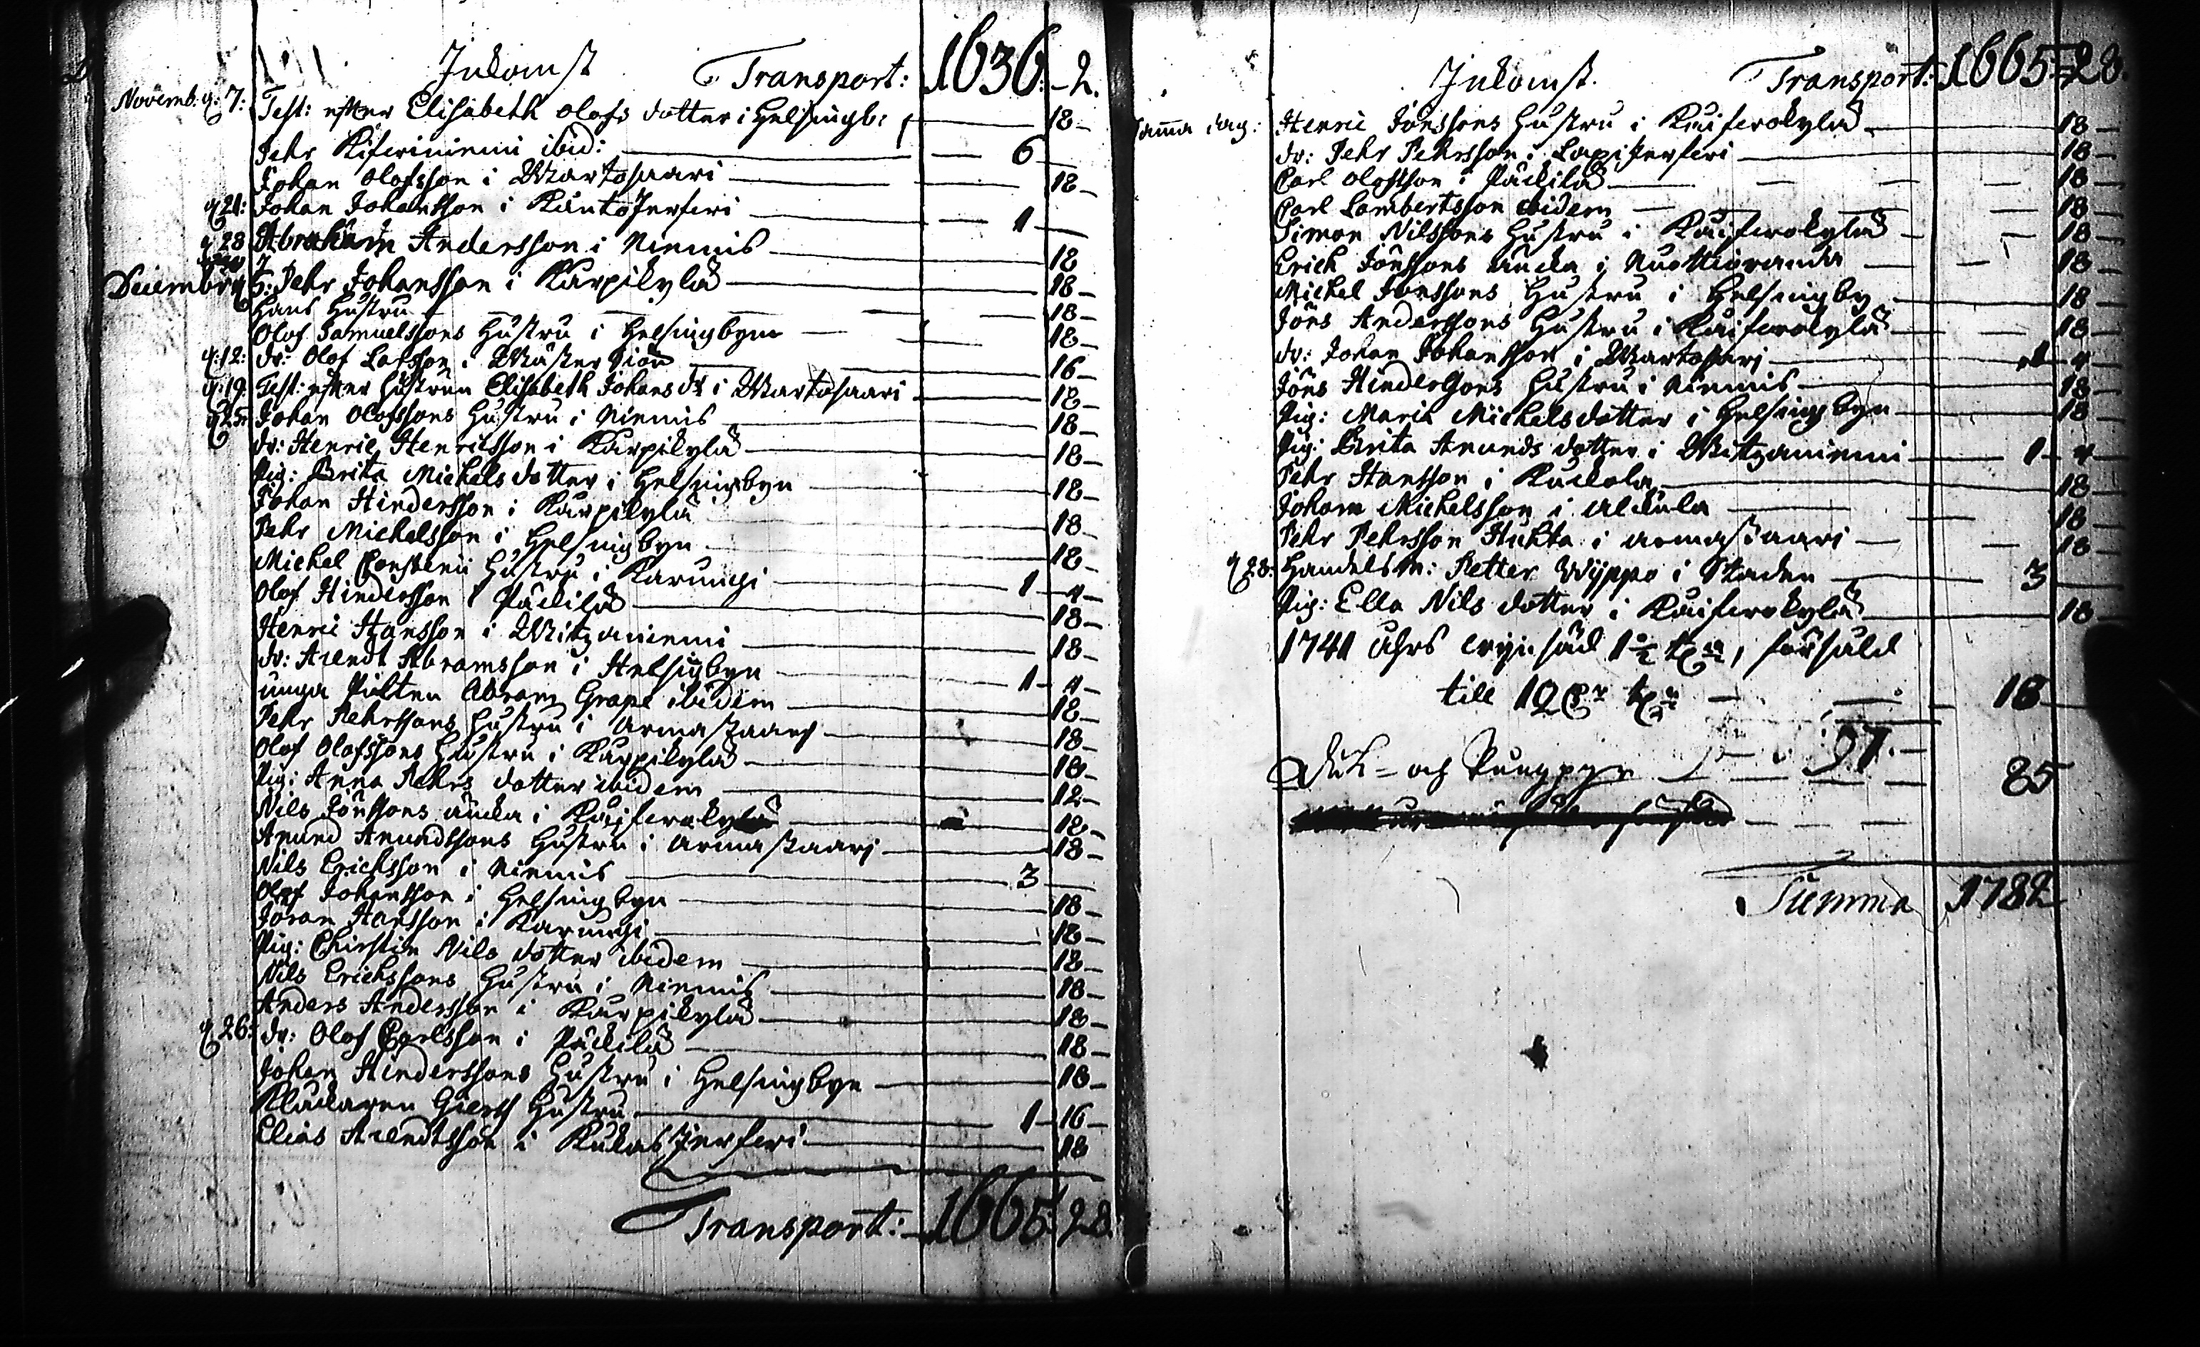 Inkomst Transport: 1636:-2.
Novemb: 7: Test: efter Elisabeth Olofs dotter i Helsingb: 18-
Pehr Kiferiniemi ibid: 6
Johan Olofsson i Martosaari 18-
21: Johan Johansson i KantoJerferi 1
28 Abraham Andersson i Niemis 18
Decembr 5: Pehr Johansson i Karpikylä 18-
Hans Hustru 18-
Olof Samuelssons Hustru i Helsingbyn 18-
12: dr: Olof Larsson i 16-
19: Test: efter Hustrun Elisabeth Johans dr i Martosaari 18-
25: Johan Olofssons Hustru i Niemis 18-
dr: Henric Henricsson i Karpikylä 18-
Pig: Brita Michels dotter i Helsingbyn 18-
Johan Hindersson i Karpikylä
Pehr Michelsson i Helsingbyn 18-
Michel Hustru i Karungi 18-
Olof Hindersson i Päckilä 1-4-
Henric Hansson i Witzaniemi 18-
dr: Arendt Abramsson i Helsigbyn 18-
unga Pilten Abram Grape ibidem 1-4-
Pehr Pehrssons Hustru i Armassaari 18-
Olof Olofssons Hustru i Karpikylä 18-
Pig: Anna Pehrs dotter ibidem 18-
Nils Jönssons äncka i Kuiferokylä 12-
Anund Anundssons Hustru i Armassaari 18-
Nils Erichsson i Niemis 18-
Olof Johansson i Helsingbyn 3
Göran Hansson i Karungi 18-
Pig: Chirstin Nils dotter ibidem 18-
Nils Erichssons Hustru i Niemis 18-
Anders Andersson i Karpikylä 18-
26: dr: Olof Carlsson i Päckilä 18-
Johan Hinderssons Hustru i Helsingbyn 18-
Klockaren Hustru 1-16-
Elias Arendtsson i KukasJerferi 18
Transport: 1665:28
Inkomst Transport: 1665-28.
Samma dag: Henric Jönssons Hustru i Kuiferokylä 18-
dr: Pehr Pehrsson i LapiJerferi 18-
Carl Olofsson i Päckilä 18-
Carl Lambertsson ibidem 18-
Simon Nilssons Hustru i Kuiferokylä 18-
Erich Jönssons äncka i Nuottioranda 18-
Michel Jonssons Hustru i Helsingby 18-
Jöns Anderssons Hustru i Kuiferokylä 18-
dr: Johan Johansson i Martosari 4-
Jöns Hinderssons Hustru i Niemis 18-
Pig: Maria Michelsdotter i Helsingbyn 18-
Pig: Brita Anunds dotter i Witzaniemi 1-4-
Pehr Hansson i Kuckola 18
Johan Michelsson i Alkula 18
Pehr Pehrsson Huhta i Armassaari 18
28: Handelsm: Petter Wippo i Staden 3
Pig: Ella Nils dotter i Kuiferokylä 18
1741 åhrs Cryn säd 1½, försåld
till 12 18
Håf- och Pungpgr 37. 85
Summa 1782